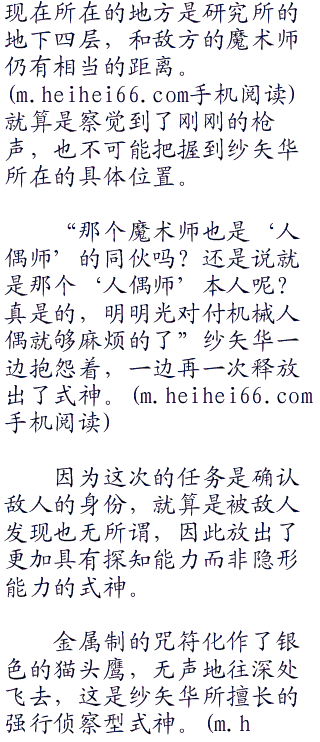 现在所在的地方是研究所的
地下四层，和敌方的魔术师
仍有相当的距离。
(m.heihei66.com手机阅读)
就算是察觉到了刚刚的枪
声，也不可能把握到纱矢华
所在的具体位置。
“那个魔术师也是‘人
偶师’的同伙吗？还是说就
是那个‘人偶师’本人呢？
真是的，明明光对付机械人
偶就够麻烦的了”纱矢华一
边抱怨着，一边再一次释放
出了式神。(m.heihei66.com
手机阅读)
因为这次的任务是确认
敌人的身份，就算是被敌人
发现也无所谓，因此放出了
更加具有探知能力而非隐形
能力的式神。
金属制的咒符化作了银
色的猫头鹰，无声地往深处
飞去，这是纱矢华所擅长的
强行侦察型式神。(m.h